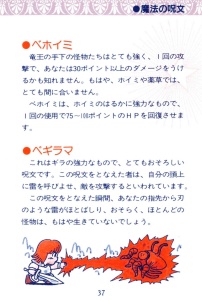 ●魔法の呪文
●ベホイミ
竜王の手下の怪物たちはとても強く、1回の攻
撃で、あなたは30ポイント以上のダメージをうけ
るかも知れません。もはや、ホイミや薬草では、
とても間に合いません。
ベホイミは、ホイミのはるかに強力なもので、
1回の使用で75～100ポイントのHPを回復させま
す。
●ベギラマ
これはギラの強力なもので、とてもおそろしい
呪文です。この呪文をとなえた者は、自分の頭上
に雷を呼びよせ、敵を攻撃するといわれています。
この呪文をとなえた瞬間、あなたの指先から刃
のような雷がほとばしり、おそらく、ほとんどの
怪物は、もはや生きていないでしょう。
37